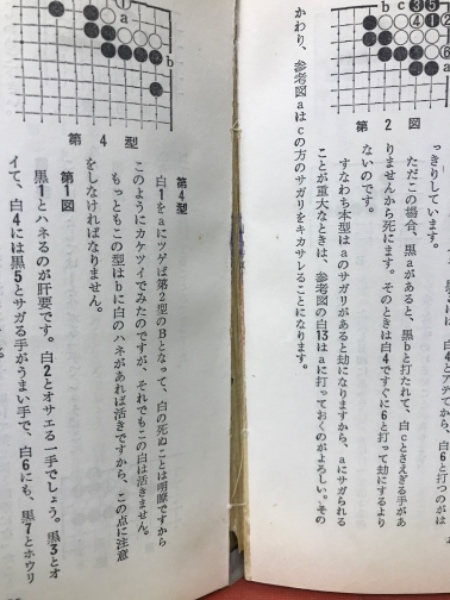 第2図
っきりしています。
ただこの場合、黒aがあると、黒bと打たれて、白cとさえぎる手があ
りませんから死にます。そのときは白4ですぐに6と打って劫にするより
ないのです。
すなわち本型はaのサガリがあると劫になりますから、aにサガられる
ことが重大なときは、参考図の白13はaに打っておくのがよろしい。その
かわり、参考図aはcの方のサガリをキカサレることになります。
第4型
第4型
白1をaにツゲば第2型のBとなって、白の死ぬことは明瞭ですから
このようにカケツイでみたのですが、それでもこの白は活きません。
もっともこの型はbに白のハネがあれば活きですから、この点に注意
をしなければなりません。
第1図
黒1とハネるのが肝要です。白2とオサエる一手でしょう。黒3とオ
イて、白4には黒5とサガる手がうまい手で、白6にも、黒7とホウリ